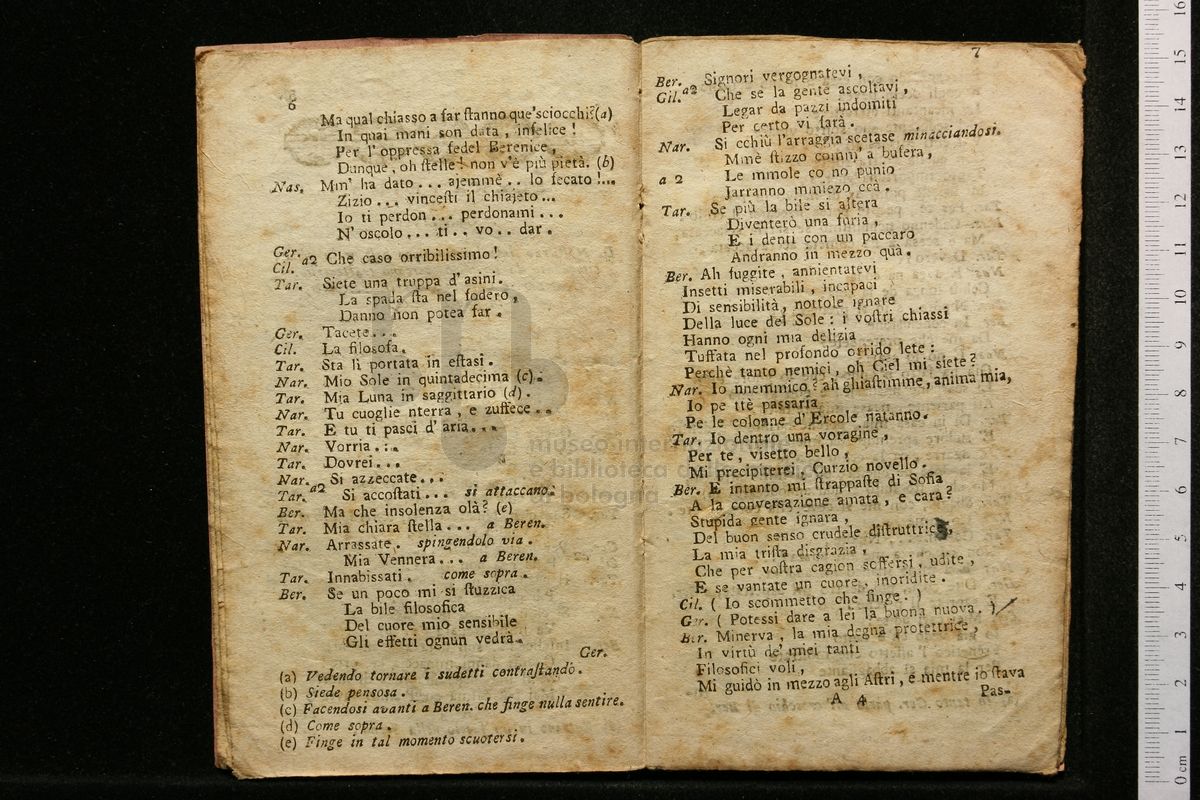 6
Ma qual chiasso a far ſtanno que'sciocchi?(a)
In quai mani son data, infelice!
Per l'oppressa fedel Berenice,
Dunque, oh ſtelle! non v'è più pietà. (b)
Nas. Mm' ha dato... ajemmè.. lo fecato!...
Zizio... vinceſti il chiajeto...
Io ti perdon... perdonami...
N' oscolo... ti.. vo.. dar.
Ger.
Cil. a2 Che caso orribilissimo!
Tar. Siete una truppa d'asini.
La spada ſta nel fodero,
Danno non potea far.
Ger. Tacete...
Cil. La filosofa.
Tar. Sta lì portata in eſtasi.
Nar. Mio Sole in quintadecima (c).
Tar. Mia Luna in saggittario (d).
Nar. Tu cuoglie nterra, e zuffece..
Tar. E tu ti pasci d'aria...
Nar. Vorria...
Tar. Dovrei...
Nar. a2 Si azzeccate...
Tar. Si accoſtati... si attaccano.
Ber. Ma che insolenza olà? (e)
Tar. Mia chiara ſtella... a Beren.
Nar. Arrassate. spingendolo via.
Mia Vennera... a Beren.
Tar. Innabissati. come sopra.
Ber. Se un poco mi si ſtuzzica
La bile filosofica
Del cuore mio sensibile
Gli effetti ognun vedrà.
Ger.
(a) Vedendo tornare i sudetti contraſtando.
(b) Siede pensosa.
(c) Facendosi avanti a Beren. che finge nulla sentire.
(d) Come sopra.
(e) Finge in tal momento scuotersi.
7
Ber. Signori vergognatevi,
Gil. a2 Che se la gente ascoltavi,
Legar da pazzi indomiti
Per certo vi farà.
Nar. Si cchiù l'arraggia scetase minacciandosi.
Mmè ſtizzo comm' a bufera,
a 2 Le mmole co no punio
Jarranno mmiezo ccà.
Tar. Se più la bile si altera
Diventerò una furia,
E i denti con un paccaro
Andranno in mezzo quà.
Ber. Ah fuggite, annientatevi
Insetti miserabili, incapaci
Di sensibilità, nottole ignare
Della luce del Sole: i voſtri chiassi
Hanno ogni mia delizia
Tuffata nel profondo orrido lete:
Perchè tanto nemici, oh Ciel mi siete?
Nar. Io nnemmico? ah ghiaſtimme, anima mia,
Io pe ttè passaria
Pe le colonne d'Ercole natanno.
Tar. Io dentro una voragine,
Per te, visetto bello,
Mi precipiterei, Curzio novello.
Ber. E intanto mi ſtrappaſte di Sofia
A la conversazione amata, e cara?
Stupida gente ignara,
Del buon senso crudele diſtruttrice,
La mia triſta disgrazia,
Che per voſtra cagion soffersi, udite,
E se vantate un cuore, inoridite.
Cil. (Io scommetto che finge.)
Ger. (Potessi dare a lei la buona nuova.)
Ber. Minerva, la mia degna protettrice,
In virtù de' miei tanti
Filosofici voli,
Mi guidò in mezzo agli Aſtri, e mentre io ſtava
A 4
Pas-
museo inter
e biblioteca
bologna